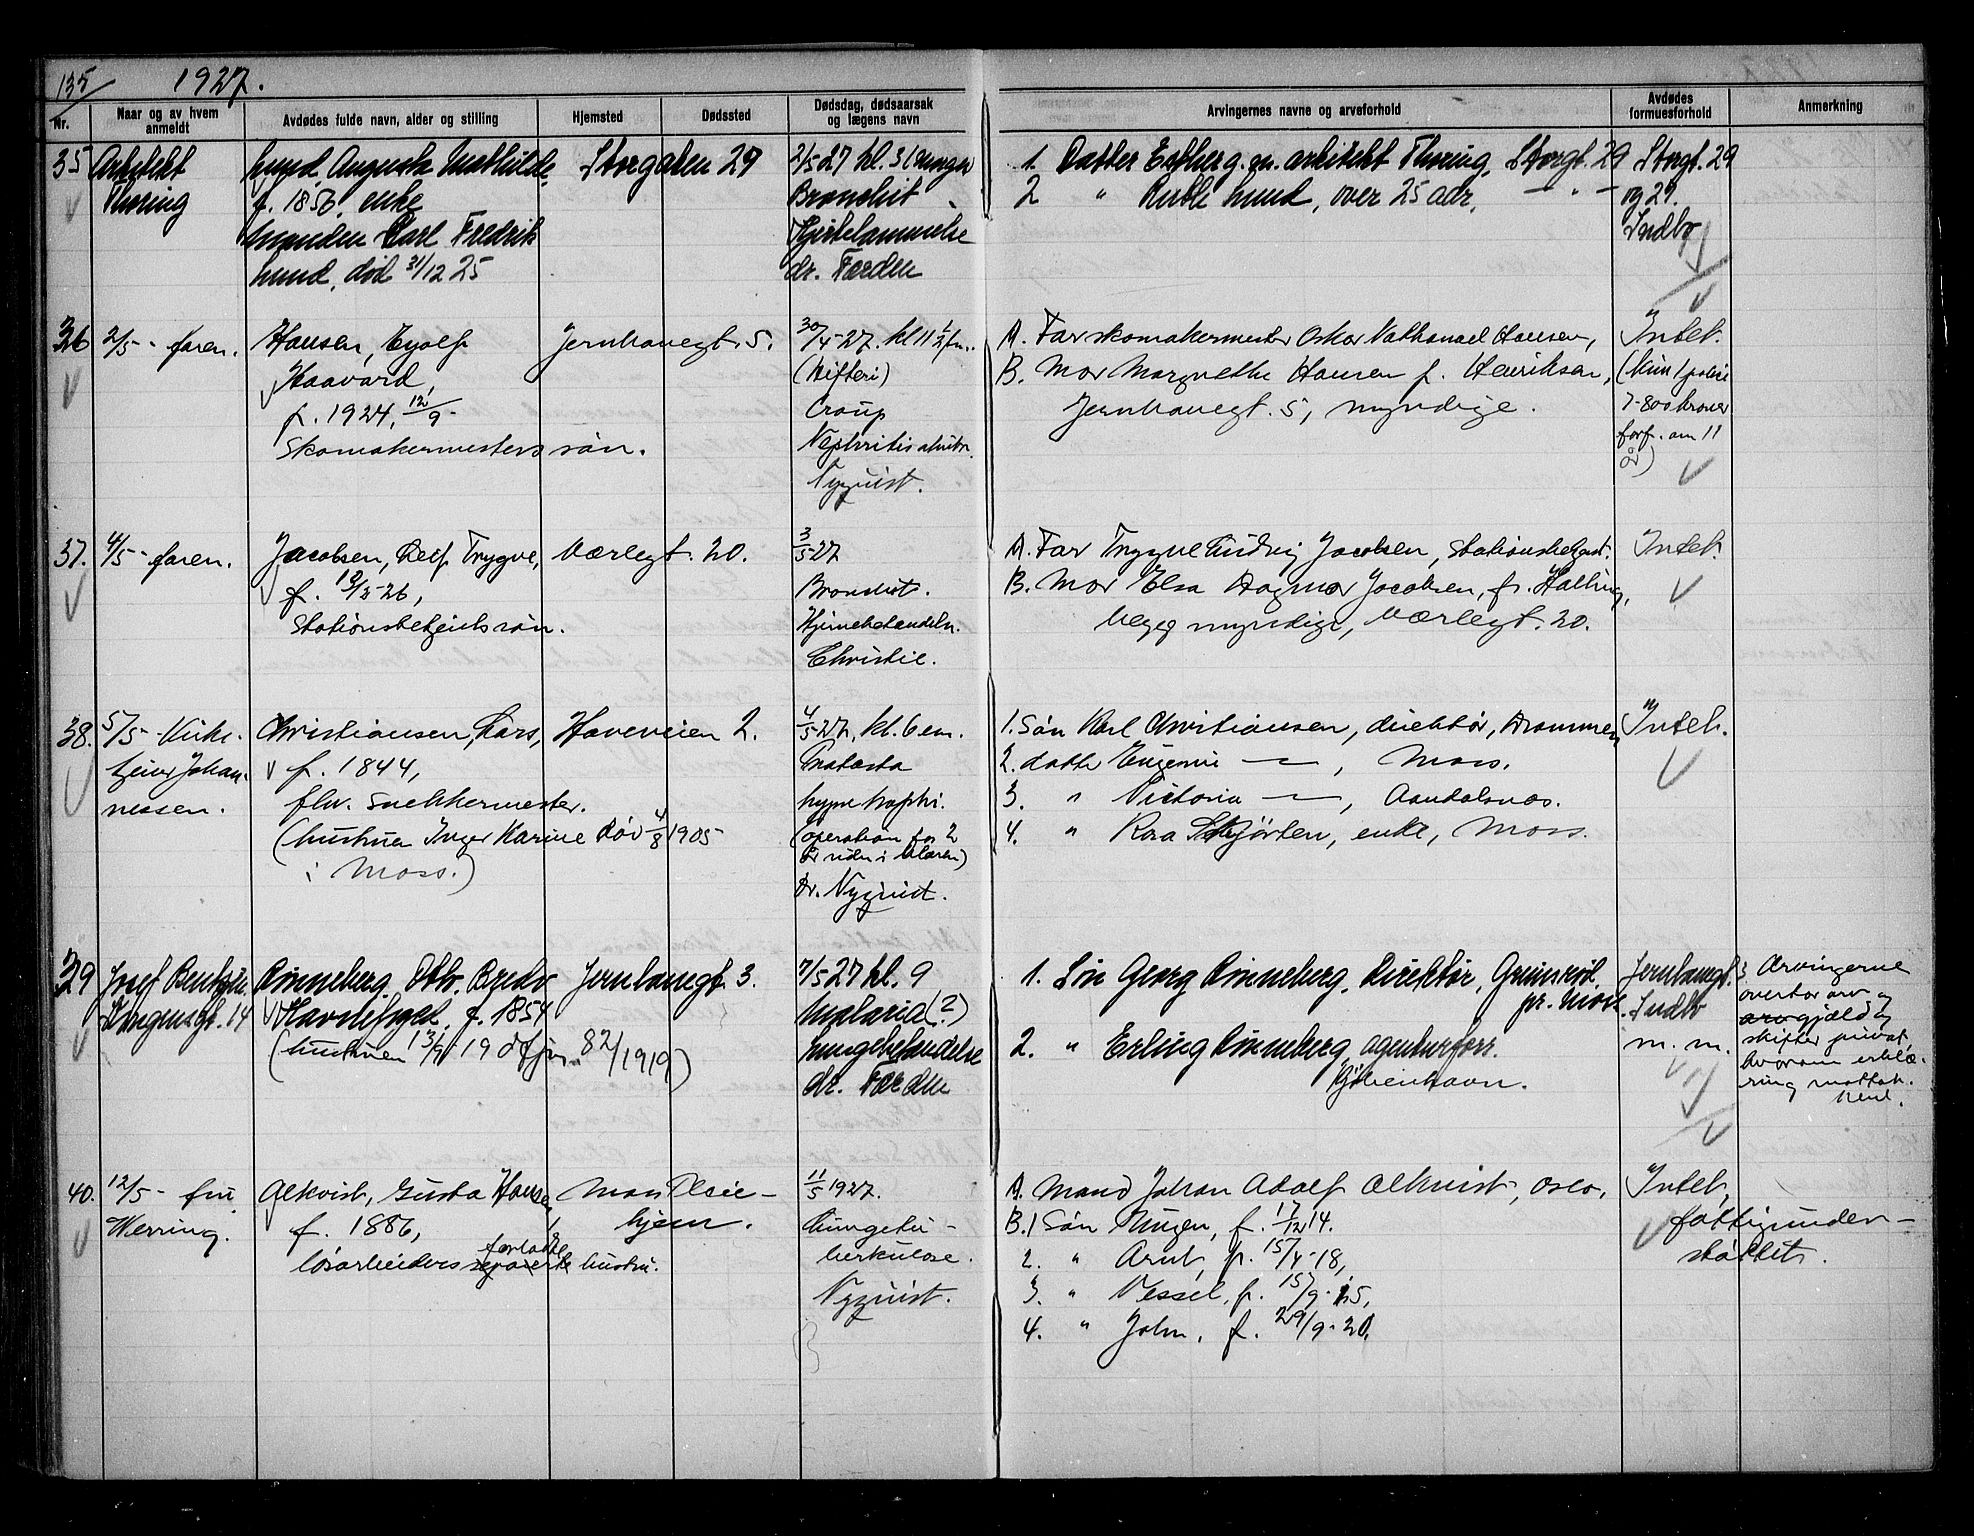 135 1927.
Nr.
Naar og av hvem anmeldt
Avdødes fulde navn, alder og stilling
Hjemsted
Dødssted
Dødsdag, dødsaarsak og lægens navn
Arvingernes navne og arveforhold
Avdødes formuesforhold
Anmerkning
35 Arkitekt
Thoring
Lund, Augusta Mathilde
f. 1856, enke
Manden Carl Fredrik
Lund, død 31/12 25
Storgaten 29
2/5 27 kl. 3
Bronchit
Hjertelammelse
dr. Færden
1 Datter gm. arkitekt Thoring, Storgt. 29
2 " Lund, over 25 aar, — " —
Storgt. 29
og 27.
Indbo
36 2/5 - faren.
Hansen, Eyolf
Haavard,
f. 1924, 12/9-
Skomakermesters søn.
Jernbanegt. 5.
30/4-27. kl 11 1/2 fm.
(Difteri)
Croup
Nephritis
Nyquist.
A. Far skomakermester Oskar Nathanael Hansen,
B. Mor Margrethe Hansen f. Henriksen,
Jernbanegt. 5, myndige.
Intet.
(Kun 1 polise
7-800 kroner
forf. om 11
år)
37. 4/5 - faren.
Jacobsen, Leif Trygve,
f. 12/3-26,
Stationsbetjents søn.
Værlegt. 20.
3/5-27
Bronchit.
Hjernebetændelse.
Christie.
A. Far Trygve Ludvig Jacobsen, Stationsbetjent.
B. Mor Elsa Dagmar Jacobsen, f. Halling,
begge myndige, Værlegt. 20.
Intet.
38. 5/5 - Kirke-
tjener Johan-
nessen.
Christiansen, Lars,
f. 1844,
fhv. Snekkermester.
(hustruen Inger Karine død 4/8 1905
i Moss.)
Haveveien 2.
4/5-27, kl. 6 em.
Prostata
hypertrophi.
(operation for 2
år siden i blæren)
Dr. Nyquist.
1. Søn Karl Christiansen, direktør, Drammen
2. datter Eugenie —"—, Moss.
3. " Victoria —"—, Aandalsnæs.
4. " Kaja Skjørten, enke, Moss.
Intet.
39 Josef
Kongensgt. 14
Rinneberg, Otto Bredo
f. 1854
(hustruen 19 82/1919)
Jernbanegt. 3.
7/5 27 kl. 9
Malaria (?)
Lungebetændelse
dr. Færden
1. Søn Georg Rinneberg, Direktør,
pr. Moss
2. " Erling Rinneberg, agenturforr.
Kjøbenhavn.
Jernbanegt. 3
Indbo
m. m.
Arvingerne
overtar arv og
gjæld og
skifter privat,
hvorom erklæ-
ring mottat.
40. 12/5 - fru
Werring.
Alkvist, Gusta Hansen,
f. 1886,
forlatte
løsarbeiders separerte hustru.
Moss Pleie-
hjem.
11/5 1927.
Lungetu-
berkulose.
Nyquist.
A. Mand Johan Adolf Alkvist, Oslo.
B. 1 Søn f. 17/12 14.
2. " Arnt, f. 15/4-18,
3. " Vessel, f. 15/9-15,
4. " John, f. 29/9-20.
Intet,
fattigunder-
støttet.